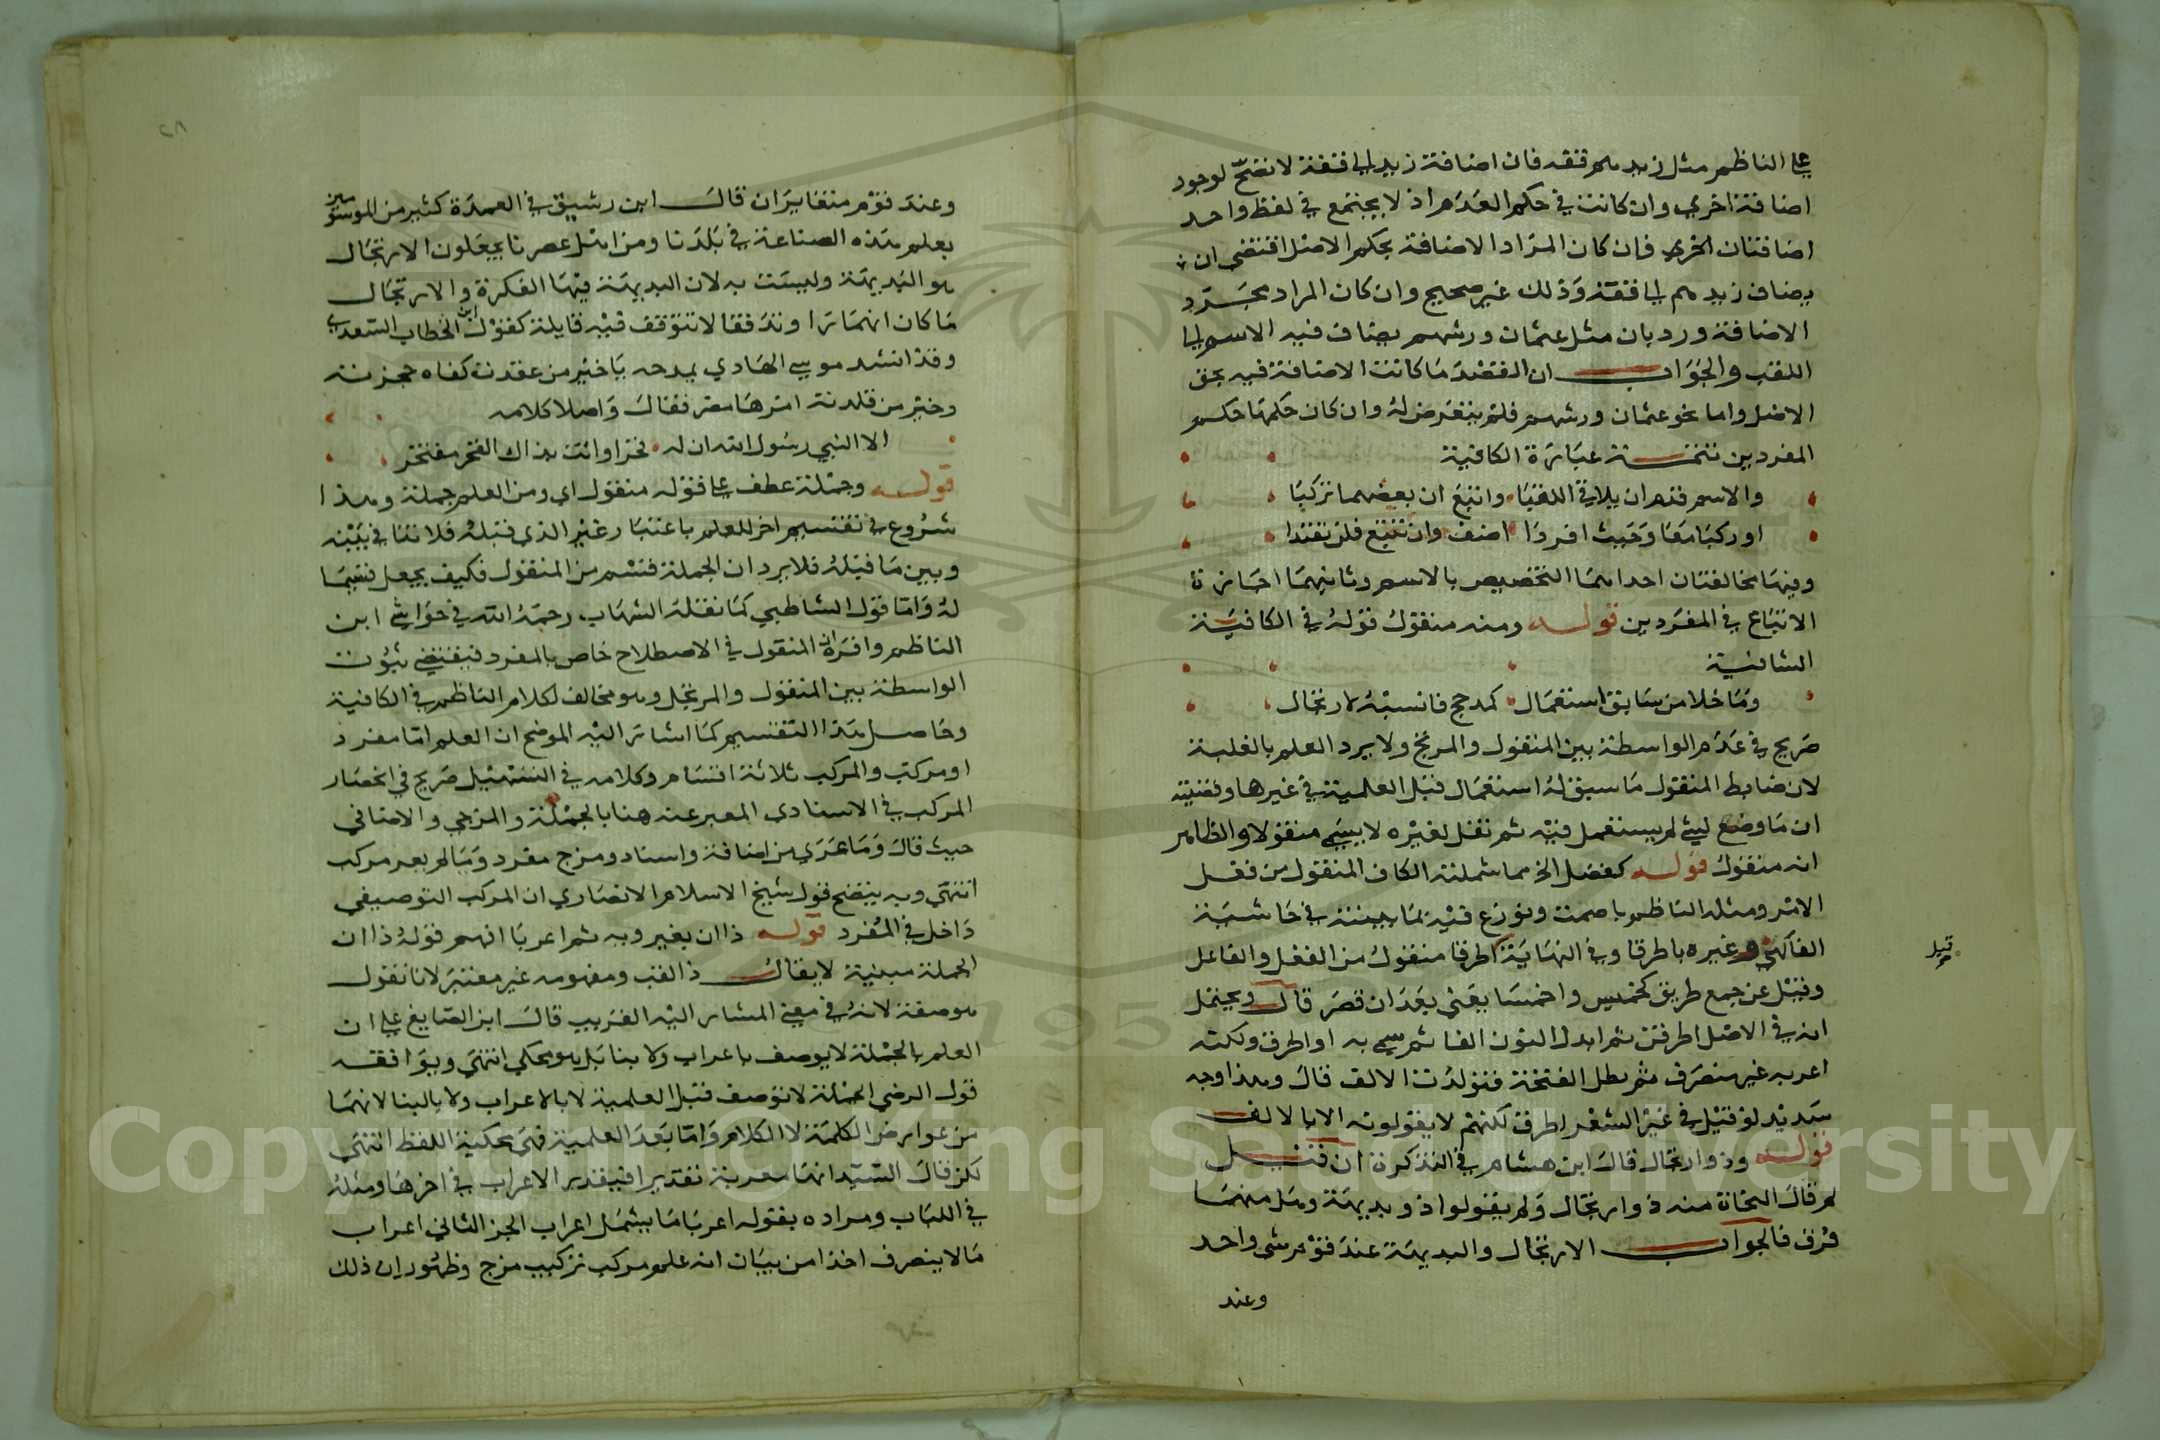 على الناظم مثل زيد هم قفه فان اضافة زيد الى قفة لا تصح لوجود
اضافة اخرى وان كانت في حكم العدم اذ لا يجتمع في لفظ واحد
اضافتان اخرى فان كان المراد الاضافة بحكم الاصل اقتضى ان
يضاف زيد هم الى قفة وذلك غير صحيح وان كان المراد مجرد
الاضافة ورد بان مثل عثمان ورشهم يضاف فيه الاسم الى
اللقب والجواب ان القصد ما كانت الاضافة فيه بحق
الاصل واما نحو عثمان ورشهم فلم يتعرض له وان كان حكمها حكم
المفردين تتمة عبارة الكافية
والاسم قدم ان يلاقي اللقبا واتبع ان بعضهما تركبا
او ركبا معا وحيث افردا اضف وان تتبع فلن تفندا
وفيها مخالفتان احداهما التخصيص بالاسم وثانيهما اجازة
الاتباع في المفردين قوله ومنه منقول قوله في الكافية
الشافية
وما خلا من سابق استعمال كمدحج فانسبه لارتجال
صريح في عدم الواسطة بين المنقول والمرتج ولا يرد العلم بالغلبة
لان ضابط المنقول ما سبق له استعمال قبل العلمية في غيرها وقضيته
ان ما وضع لشئ لم يستعمل فيه ثم نقل لغيره لا يسمى منقولا والظاهر
انه منقول قوله كفضل الخ مما شملته الكاف المنقول من فعل
الامر ومثله الناظم باصمت ونوزع فيه بما بينته في حاشية
الفاكهي وغيره باطرقا وفي النهاية اطرقا منقول من الفعل والفاعل
قيل
وقيل عن جمع طريق كخميس واخمسا يعني بعد ان قصر قال ويحتمل
انه في الاصل اطرقن ثم ابدل النون الفا ثم سمي به او اطرق ولكنه
اعربه غير منصرف ثم مطل الفتحة فتولدت الالف قال وهذا وجه
سديد لو قيل في غير الشعر اطرق لكنهم لا يقولونه الا بالالف
قوله وذو ارتجال قال ابن هشام في التذكرة ان قيل
لم قال النحاة منه ذو ارتجال ولم يقولوا ذو بديهة وهل منهما
فرق فالجواب الارتجال والبديهة عند قوم شى واحد
وعند
وعند قوم متغايران قال ابن رشيق في العمدة كثير من الموسومين
بعلم هذه الصناعة في بلدنا ومن اهل عصرنا يجعلون الارتجال
هو البديهة وليست به لان البديهة فيها الفكرة والارتجال
ما كان انهمارا وتدفقا لا تتوقف فيه قايلته كقول ابن الخطاب السعدي
وقد انشد موسى الهادي يمدحه يا خير من عقدت كفاه حجزته
وخير من قلدته امرها مضر فقال واصلا كلامه
الا النبي رسول الله ان له فخرا وانت بذاك الفخر مفتخر
قوله وجملة عطف على قوله منقول اي ومن العلم جملة وهذا
شروع في تقسيم اخر للعلم باعتبار غير الذي قبله فلا تنافي بينه
وبين ما قبله فلا يرد ان الجملة قسم من المنقول فكيف يجعل قسيما
له واما قول الشاطبي كما نقله الشهاب رحمه الله في حواشي ابن
الناظم واقره ان المنقول في الاصطلاح خاص بالمفرد فيقتضي ثبوت
الواسطة بين المنقول والمرتجل وهو مخالف لكلام الناظم في الكافية
وحاصل هذا التقسيم كما اشار اليه الموضح ان العلم اما مفرد
او مركب والمركب ثلاثة اقسام وكلامه في التسهيل صريح في انحصار
المركب في الاسنادي المعبر عنه هنا بالجملة والمزجي والاضافي
حيث قال وما عري من اضافة واسناد ومزج مفرد وما لم يعر مركب
انتهى وبه يتضح قول شيخ الاسلام الانصاري ان المركب التوصيفي
داخل في المفرد قوله ذا ان بغير ويه تم اعربا افهم قوله ذا ان
الجملة مبنية لا يقال ذا لقب ومفهومه غير معتبر لانا نقول
هو صفة لانه في معنى المشار اليه القريب قال ابن الصايغ على ان
العلم بالجملة لا يوصف باعراب ولا بنا بل هو محكي انتهى ويوافقه
قول الرضي الجملة لا توصف قبل العلمية لا بالاعراب ولا بالبنا لانهما
من عوارض الكلمة لا الكلام واما بعد العلمية فهي محكية اللفظ انتهى
لكن قال السيد انها معربة تقديرا فيقدر الاعراب في اخرها ومثله
في اللباب ومراده بقوله اعربا ما يشمل اعراب الجز الثاني اعراب
ما لا ينصرف اخذا من بيان انه علم مركب تركيب مزج وظهور ان ذلك
Copyright © King Saud University
1957